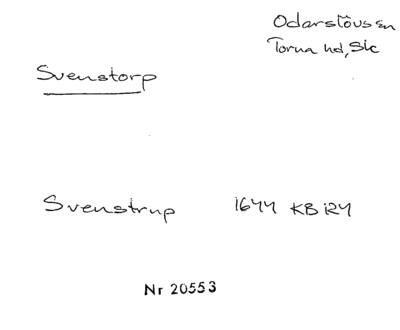 Odarslövs sn
Torna hd, Sk
Svenstorp
Svenstrup 1644 KB i24
Nr 20553